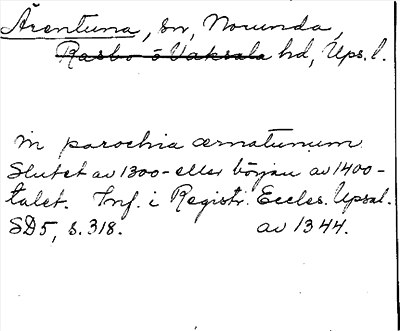 Ärentuna, sn, Norunda,
Rasbo o Vaksala hd, Ups. l.
in parochia ærnatunum
Slutet av 1300- eller början av 1400-
talet. Inf. i Registr. Eccles. Upsal.
SD5, s. 318. av 1344.